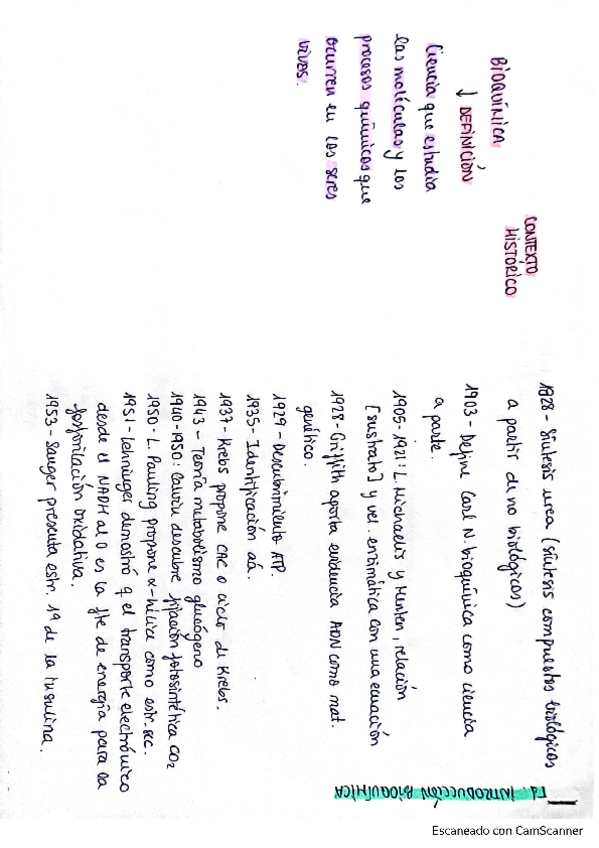 T1 INTRODUCCIÓN BIOQUÍMICA
BIOQUÍMICA
↓ DEFINICIÓN
Ciencia que estudia
las moléculas y los
procesos químicos que
ocurren en los seres
vivos.
CONTEXTO
HISTÓRICO
1828 - Síntesis urea (síntesis compuestos biológicos
a partir de no biológicos)
1903 - Define Carl N. bioquímica como ciencia
a parte.
1905-1921: L. Michaelis y Menten, relación
[sustrato] y vel. enzimática con una ecuación
1928 - Griffith aporta evidencia ADN como mat.
genético.
1929 - Descubrimiento ATP.
1935 - Identificación aá.
1937 - Krebs propone CAC o ciclo di Krebs.
1943 - Teoría metabolismo glucógeno
1940-1950: Calvin descubre fijación fotosintética CO2
1950 - L. Pauling propone α-hélice como estr. sec.
1951 - Lehninger demostró q el transporte electrónico
desde el NADH al O es la fte de energía para la
fosforilación oxidativa.
1953 - Sanger presenta estr. 1ª de la insulina.
Escaneado con CamScanner